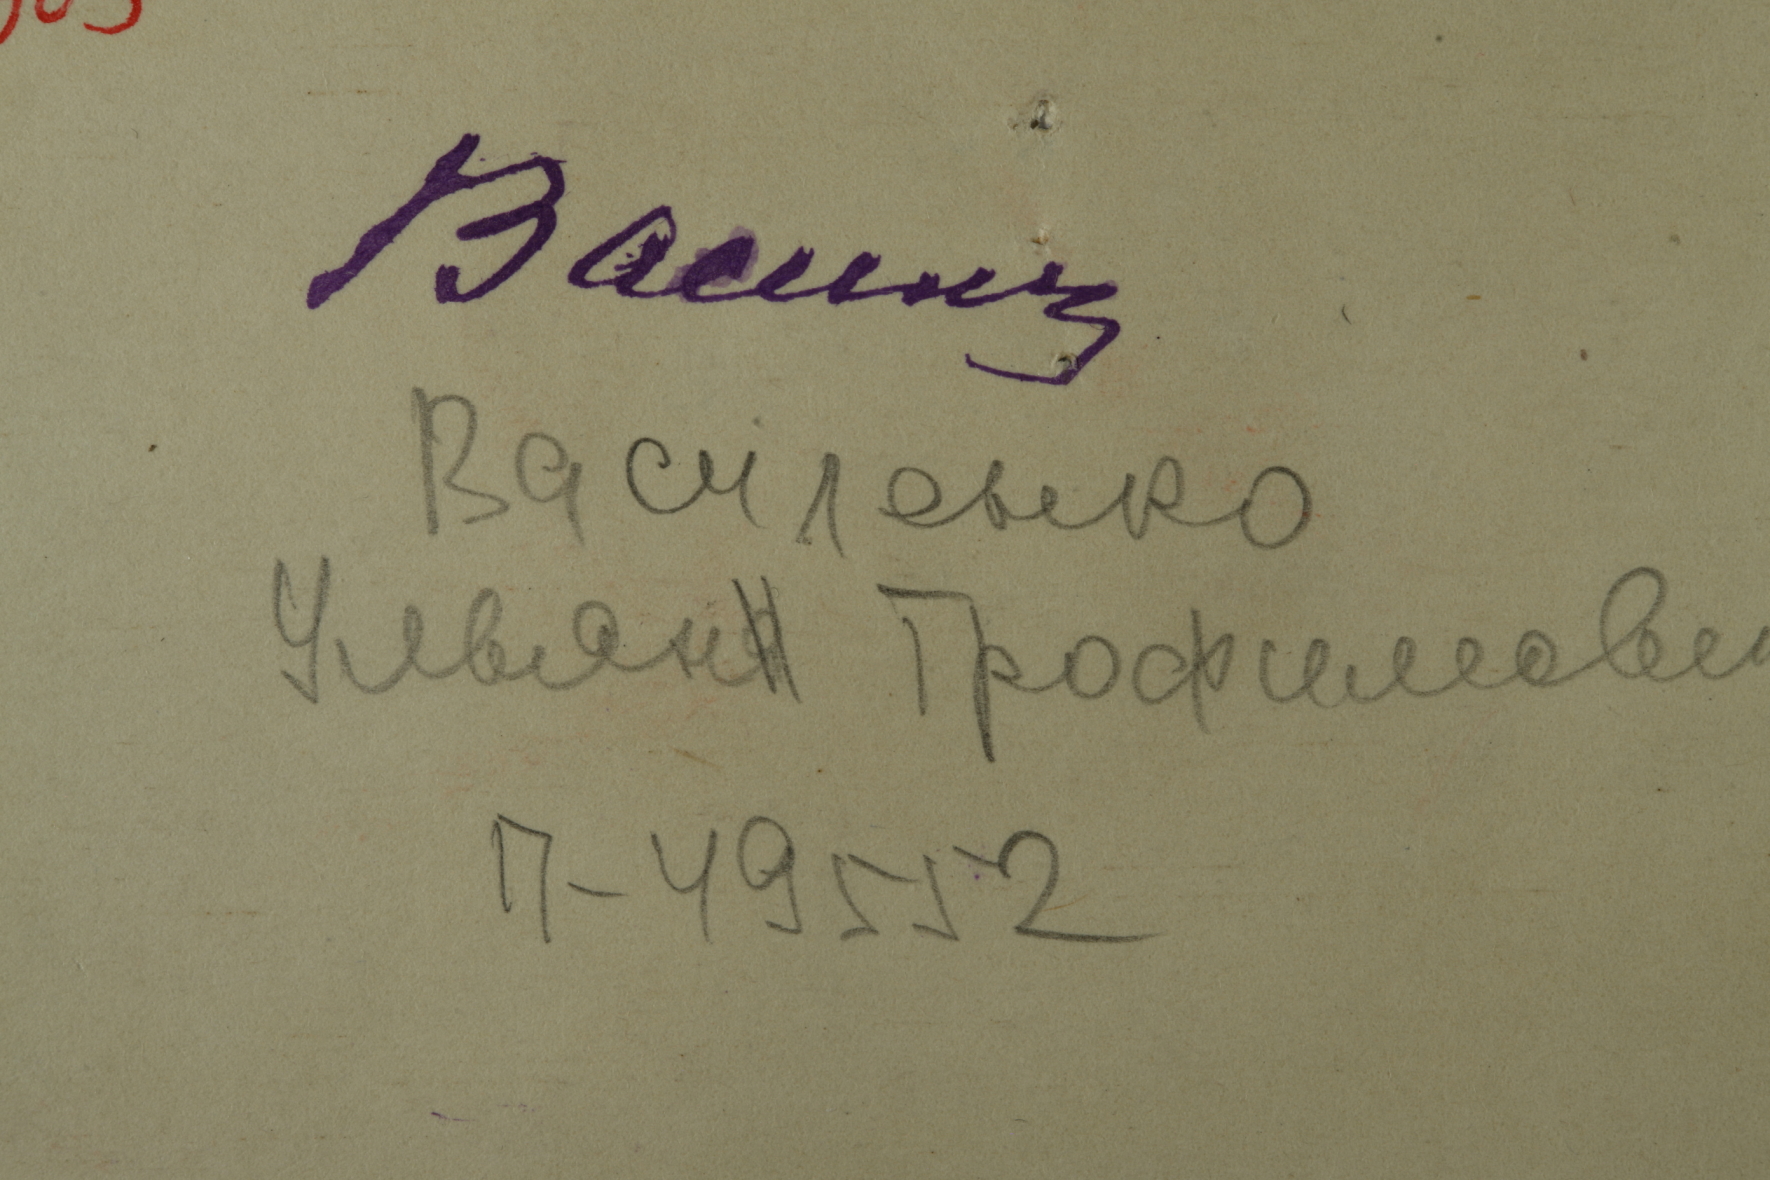 Васіленко
Ульян Трофимови
П-49552